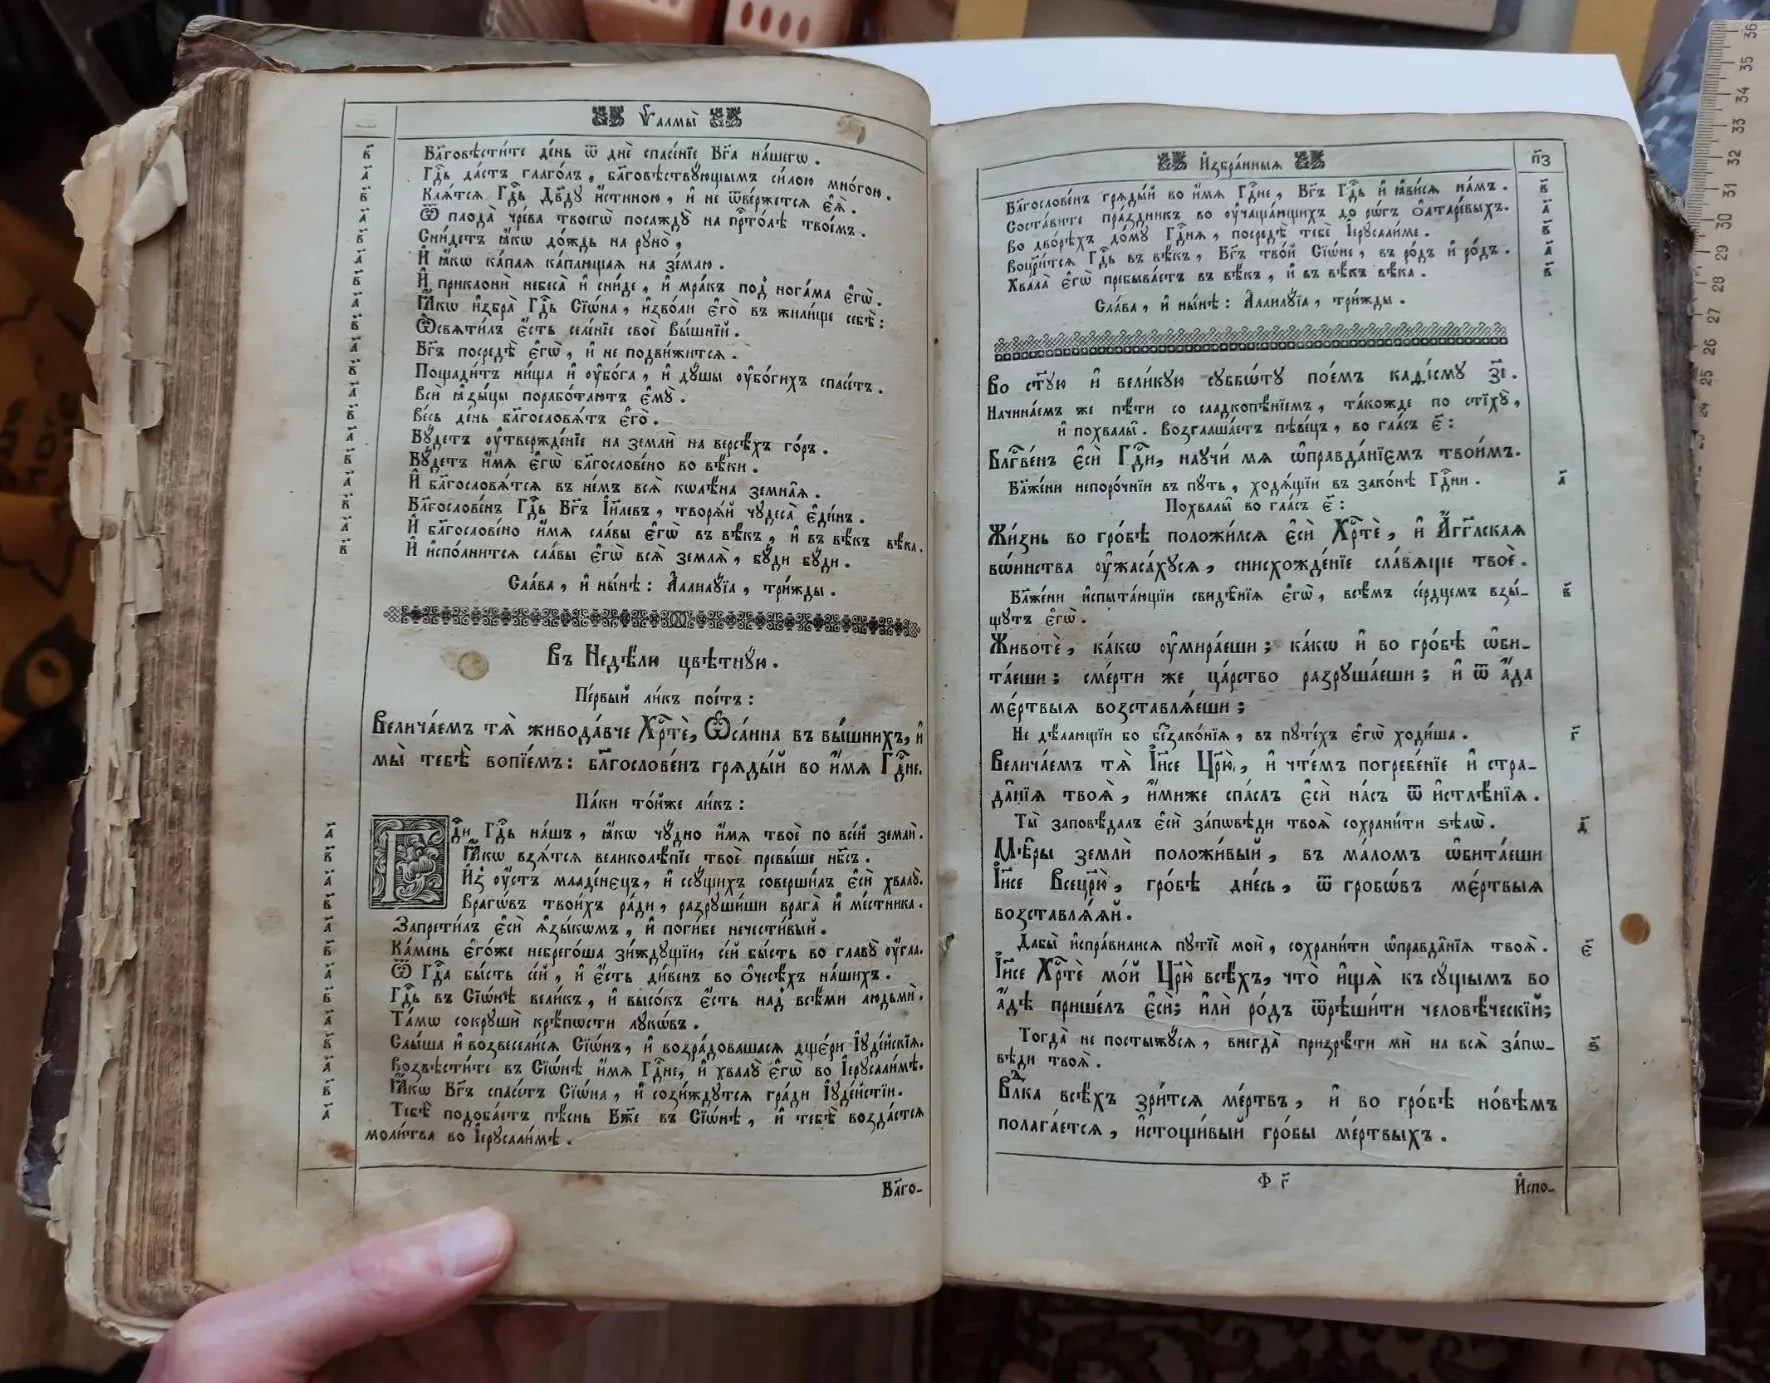 Ѱалмы̀
Бл҃говѣсти́те де́нь ѿ днѐ спасе́нїе Бг҃а на́шегѡ.
Гд҇ь да́стъ глаго́лъ, бл҃говѣствꙋ́ющымъ си́лою мно́гою.
Кля́тся Гд҇ь Дв҃дꙋ и҆́стиною, и҆ не ѿве́ржется є҆ѧ̀.
Ѿ плода̀ чре́ва твоегѡ̀ посаждꙋ̀ на прⷭ҇то́лѣ твое́мъ.
Сни́детъ ꙗ҆́кѡ до́ждь на рꙋно̀,
И҆ ꙗ҆́кѡ ка́плѧ ка́плющаѧ на зе́млю.
И҆ приклонѝ небеса̀ и҆ сни́де, и҆ мра́къ под̾ нога́ма є҆гѡ̀.
Ꙗ҆́кѡ и҆збра̀ Гд҇ь Сїѡ́на, и҆зво́ли є҆го̀ въ жили́ще себѣ̀:
Ѡ҆свѧти́лъ є҆́сть селе́нїе своѐ Вы́шнїй.
Бг҃ъ посредѣ̀ є҆гѡ̀, и҆ не подви́жится.
Пощади́тъ ни́ща и҆ ᲂу҆бо́га, и҆ дꙋ́шы ᲂу҆бо́гихъ спасе́тъ.
Всѝ ꙗ҆зы́цы порабо́таютъ є҆мꙋ̀.
Ве́сь де́нь бл҃гословѧ́тъ є҆го̀.
Бꙋ́детъ ᲂу҆твержде́нїе на землѝ на версѣ́хъ го́ръ.
Бꙋ́детъ и҆́мѧ є҆гѡ̀ бл҃гослове́но во вѣ́ки.
И҆ бл҃гословѧ́тся въ не́мъ всѧ̀ кѡлѣ́на земна̑ѧ.
Бл҃гослове́нъ Гд҇ь Бг҃ъ І҆и҃левъ, творѧ́й чꙋдеса̀ є҆ди́нъ.
И҆ бл҃гослове́но и҆́мѧ сла́вы є҆гѡ̀ въ вѣ́къ, и҆ въ вѣ́къ вѣ́ка.
И҆ и҆спо́лнится сла́вы є҆гѡ̀ всѧ̀ землѧ̀, бꙋ́ди бꙋ́ди.
Сла́ва, и҆ ны́нѣ: А҆ллилꙋ́їа, три́жды.
Въ Недѣ́лю цвѣтнꙋ́ю.
Пе́рвый ли́къ пое́тъ:
Велича́емъ тѧ̀ живода́вче Хрⷭ҇тѐ, Ѡ҆са́нна въ вы́шнихъ, и҆
мы̀ тебѣ̀ вопїе́мъ: бл҃гослове́нъ грѧды́й во и҆́мѧ Гд҇не.
Па́ки то́йже ли́къ:
Гд҇и Гд҇ь на́шъ, ꙗ҆́кѡ чꙋ́дно и҆́мѧ твоѐ по все́й землѝ.
Ꙗ҆́кѡ взѧ́тся великолѣ́пїе твоѐ превы́ше нб҃съ.
И҆з̾ ᲂу҆́стъ младе́нєцъ, и҆ ссꙋ́щихъ соверши́лъ є҆сѝ хвалꙋ̀.
Врагѡ́въ твои́хъ ра́ди, разрꙋши́ши врага̀ и҆ ме́стника.
Запрети́лъ є҆сѝ ꙗ҆зы́кѡмъ, и҆ поги́бе нечести́вый.
Ка́мень є҆го́же небрего́ша зи́ждꙋщїи, се́й бы́сть во главꙋ̀ ᲂу҆́гла.
Ѿ Гд҇а бы́сть се́й, и҆ є҆́сть ди́венъ во ѻ҆чесѣ́хъ на́шихъ.
Гд҇ь въ Сїѡ́нѣ вели́къ, и҆ высо́къ є҆́сть над̾ все́ми людьмѝ.
Та́мѡ сокрꙋшѝ крѣ́пѡсти лꙋ́кѡвъ.
Слы́ша и҆ возвесели́ся Сїѡ́нъ, и҆ возра́довашася дще́ри І҆ꙋде́йскїѧ.
Возвѣсти́те въ Сїѡ́нѣ и҆́мѧ Гд҇не, и҆ хвалꙋ̀ є҆гѡ̀ во І҆ерꙋсали́мѣ.
Ꙗ҆́кѡ Бг҃ъ спасе́тъ Сїѡ́на, и҆ сози́ждꙋтся гра́ди І҆ꙋде́йстїи.
Тебѣ̀ подоба́етъ пѣ́снь Бж҃е въ Сїѡ́нѣ, и҆ тебѣ̀ возда́стся
моли́тва во І҆ерꙋсали́мѣ.
Бл҃го-
И҆збра́нныѧ
п҃з
Бл҃гослове́нъ грѧды́й во и҆́мѧ Гд҇не, Бг҃ъ Гд҇ь и҆ ꙗ҆ви́ся на́мъ.
Соста́вите пра́здникъ во ᲂу҆чаща́ющихъ до ро́гъ ѻ҆лтаре́выхъ.
Во дво́рѣхъ до́мꙋ Гд҇нѧ, посредѣ̀ тебѐ І҆ерꙋсали́ме.
Воцр҃и́тся Гд҇ь въ вѣ́къ, Бг҃ъ тво́й Сїѡ́не, въ ро́дъ и҆ ро́дъ.
Хвала̀ є҆гѡ̀ пребыва́етъ въ вѣ́къ, и҆ въ вѣ́къ вѣ́ка.
Сла́ва, и҆ ны́нѣ: А҆ллилꙋ́їа, три́жды.
Во ст҃ꙋ́ю и҆ вели́кꙋю сꙋббѡ́тꙋ пое́мъ каѳі́смꙋ з҃і.
Начина́емъ же пѣ́ти со сладкопѣ́нїемъ, та́кожде по сті́хꙋ,
и҆ похвалы̑. Возглаша́етъ пѣве́цъ, во гла́съ є҃:
Блг҇ве́нъ є҆сѝ Гд҇и, наꙋчи́ мѧ ѡ҆правда́нїємъ твои̑мъ.
Бл҃же́ни непоро́чнїи въ пꙋ́ть, ходѧ́щїи въ зако́нѣ Гд҇ни.
а҃
Похвалы̑ во гла́съ є҃:
Жи́знь во гро́бѣ положи́лся є҆сѝ Хрⷭ҇тѐ, и҆ А҆́гг҃лскаѧ
вѡ́инства ᲂу҆жаса́хꙋся, снисхожде́нїе сла́вѧще твоѐ.
Бл҃же́ни и҆спыта́ющїи свидѣ̑нїѧ є҆гѡ̀, всѣ́мъ се́рдцемъ взы́-
щꙋтъ є҆гѡ̀.
в҃
Животѐ, ка́кѡ ᲂу҆мира́еши; ка́кѡ и҆ во гро́бѣ ѡ҆би-
та́еши; сме́рти же ца́рство разрꙋша́еши; и҆ ѿ а҆́да
мє́ртвыѧ возставлѧ́еши;
Не дѣ́лающїи бо беззако́нїѧ, въ пꙋте́хъ є҆гѡ̀ ходи́ша.
г҃
Велича́емъ тѧ̀ І҆и҃се Цр҃ю̀, и҆ чте́мъ погребе́нїе и҆ стра-
да̑нїѧ твоѧ̑, и҆́миже спа́слъ є҆сѝ на́съ ѿ и҆стлѣ́нїѧ.
Ты̀ заповѣ́далъ є҆сѝ за́пѡвѣди твоѧ̑ сохрани́ти ѕѣлѡ̀.
д҃
Мѣ́ры землѝ положи́вый, въ ма́ломъ ѡ҆бита́еши
І҆и҃се Всецр҃ю̀, гро́бѣ дне́сь, ѿ гробѡ́въ мє́ртвыѧ
возставлѧ́ѧй.
Дабы̀ и҆спра́вилися пꙋтїѐ моѝ, сохрани́ти ѡ҆правда̑нїѧ твоѧ̑.
є҃
І҆и҃се Хрⷭ҇тѐ мо́й Цр҃ю̀ всѣ́хъ, что̀ и҆щѧ̀ къ сꙋ́щымъ во
а҆́дѣ прише́лъ є҆сѝ; и҆лѝ ро́дъ ѿрѣши́ти человѣ́ческїй;
Тогда̀ не постыжꙋ́ся, внегда̀ призрѣ́ти мѝ на всѧ̑ за́пѡ-
вѣди твоѧ̑.
ѕ҃
Влⷣка всѣ́хъ зри́тся ме́ртвъ, и҆ во гро́бѣ но́вѣмъ
полага́ется, и҆стощи́вый гро́бы ме́ртвыхъ.
Ф г҃
И҆спо-